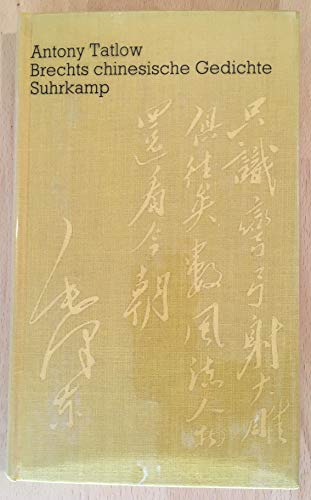 Antony Tatlow
Brechts chinesische Gedichte
Suhrkamp
只識彎弓射大雕
俱往矣數風流人物
還看今朝
毛澤東